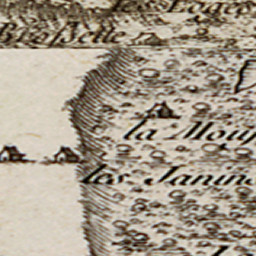 les Loges
Brossette
la Mouf
les Janin